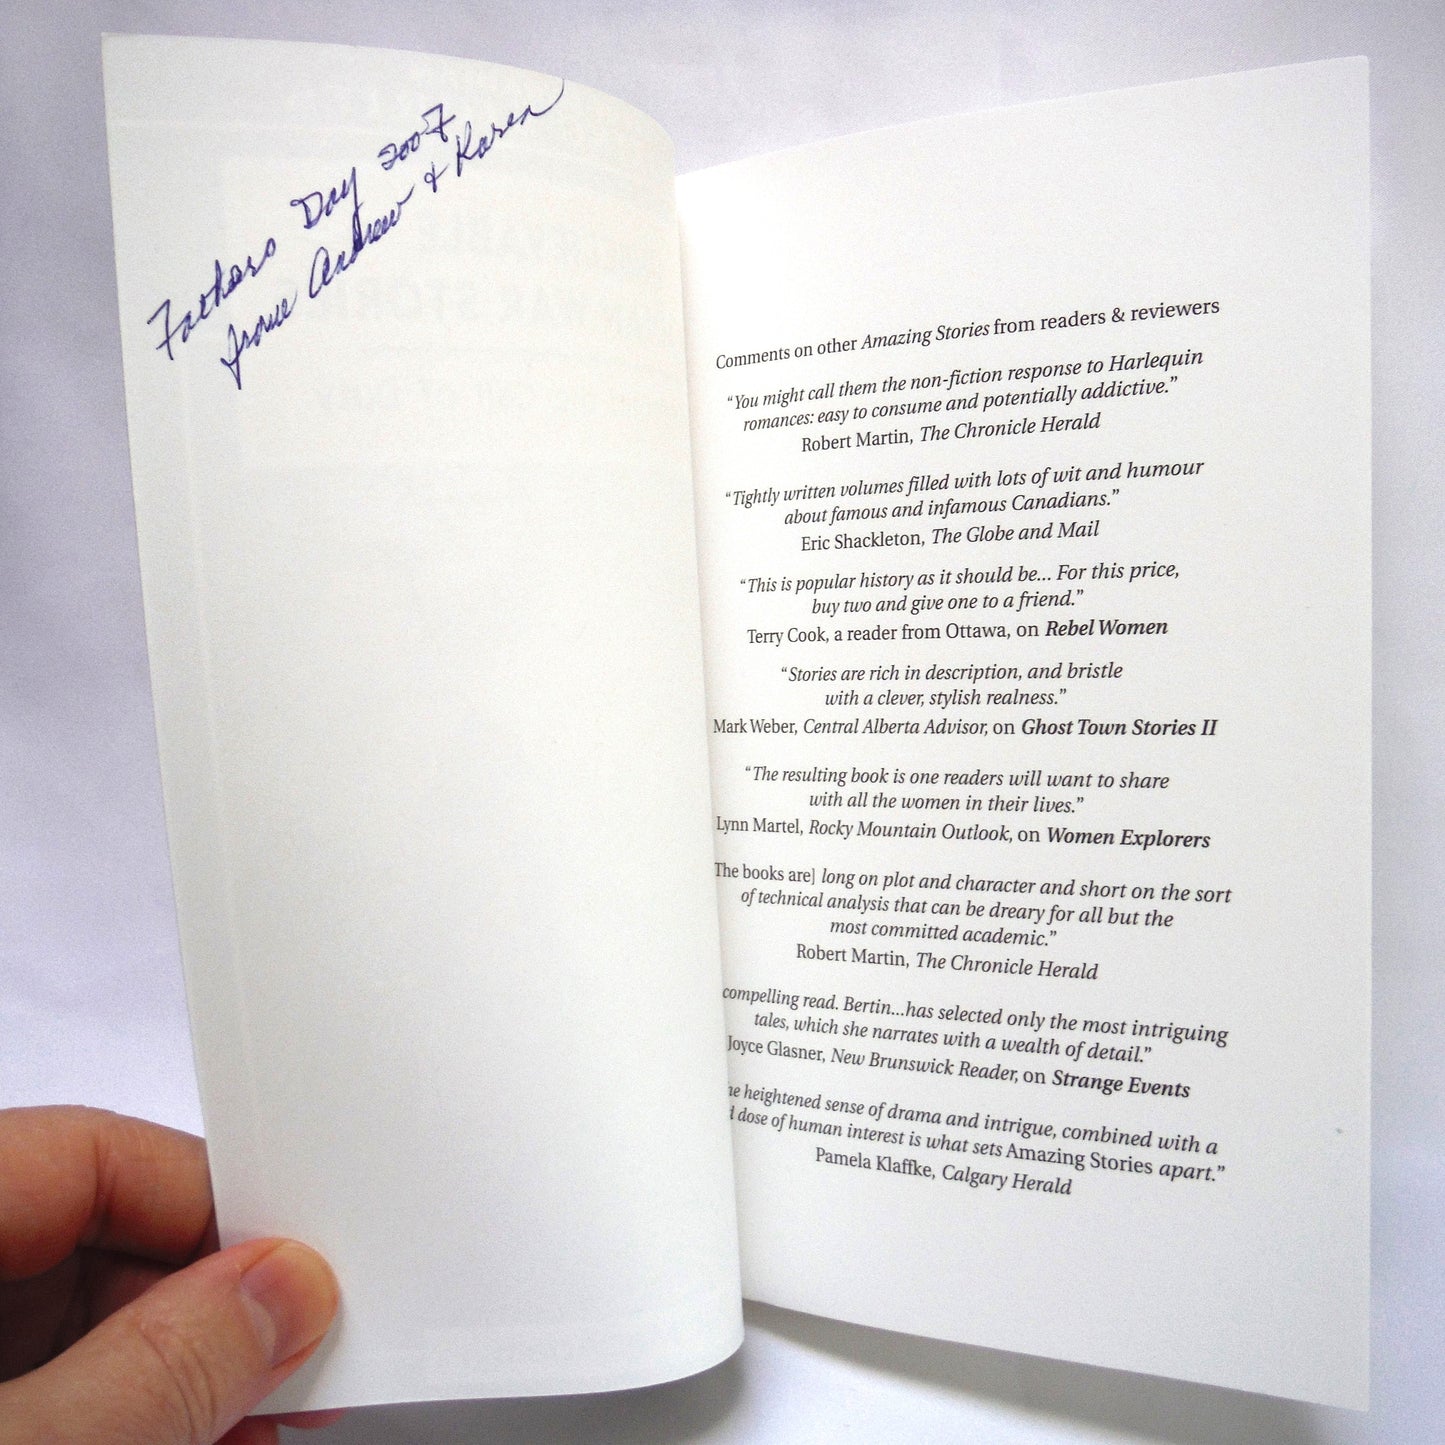 Fathers Day 2007
from Andrew & Karen
Comments on other Amazing Stories from readers & reviewers
“You might call them the non-fiction response to Harlequin
romances: easy to consume and potentially addictive.”
Robert Martin, The Chronicle Herald
“Tightly written volumes filled with lots of wit and humour
about famous and infamous Canadians.”
Eric Shackleton, The Globe and Mail
“This is popular history as it should be... For this price,
buy two and give one to a friend.”
Terry Cook, a reader from Ottawa, on Rebel Women
“Stories are rich in description, and bristle
with a clever, stylish realness.”
Mark Weber, Central Alberta Advisor, on Ghost Town Stories II
“The resulting book is one readers will want to share
with all the women in their lives.”
Lynn Martel, Rocky Mountain Outlook, on Women Explorers
The books are] long on plot and character and short on the sort
of technical analysis that can be dreary for all but the
most committed academic.”
Robert Martin, The Chronicle Herald
compelling read. Bertin...has selected only the most intriguing
tales, which she narrates with a wealth of detail.”
Joyce Glasner, New Brunswick Reader, on Strange Events
heightened sense of drama and intrigue, combined with a
dose of human interest is what sets Amazing Stories apart.”
Pamela Klaffke, Calgary Herald